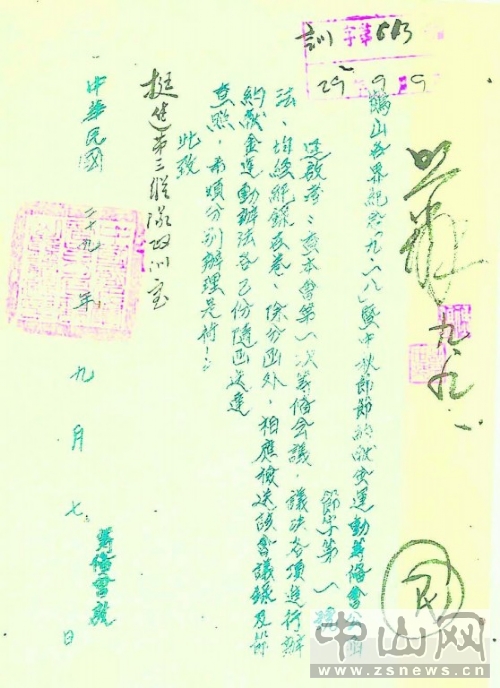 訓字第613
29 9 9
鶴山各界紀念九.一八暨中秋節節約献金運動筹備會公函
節字第一号
逕啟者:查本會第一次筹備会議,議决各項進行辦
法,均經紀錄在卷,除分函外,相應檢送該會議錄及節
約献金運動辦法各乙份隨函送達
查照,希煩分别辦理是荷!
此致
挺進第三縱隊政训室
筹備會啟
中華民國二十九年九月七日
九.九.
中山网
www.zsnews.cn